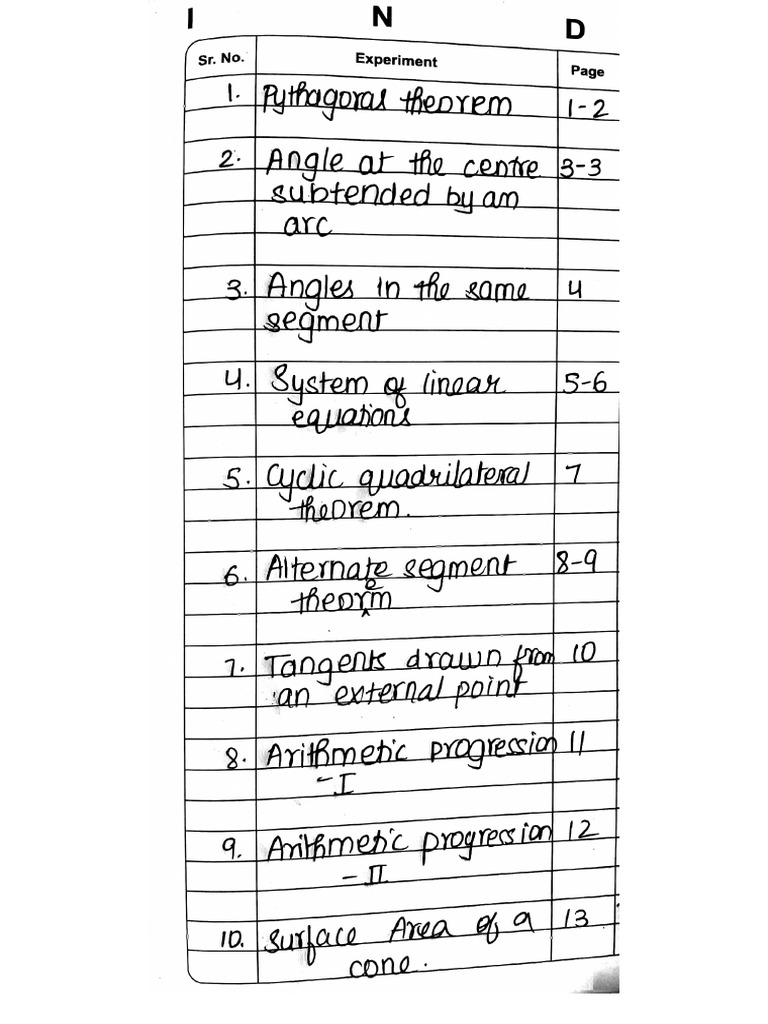 I N D
Sr. No. Experiment Page
1. Pythagoras theorem 1-2
2. Angle at the centre 3-3
subtended by an
arc
3. Angles in the same 4
segment
4. System of linear 5-6
equations
5. Cyclic quadrilateral 7
theorem.
6. Alternate segment 8-9
theorem
7. Tangents drawn from 10
an external point
8. Arithmetic progression 11
-I
9. Arithmetic progression 12
-II
10. Surface Area of a 13
cone.